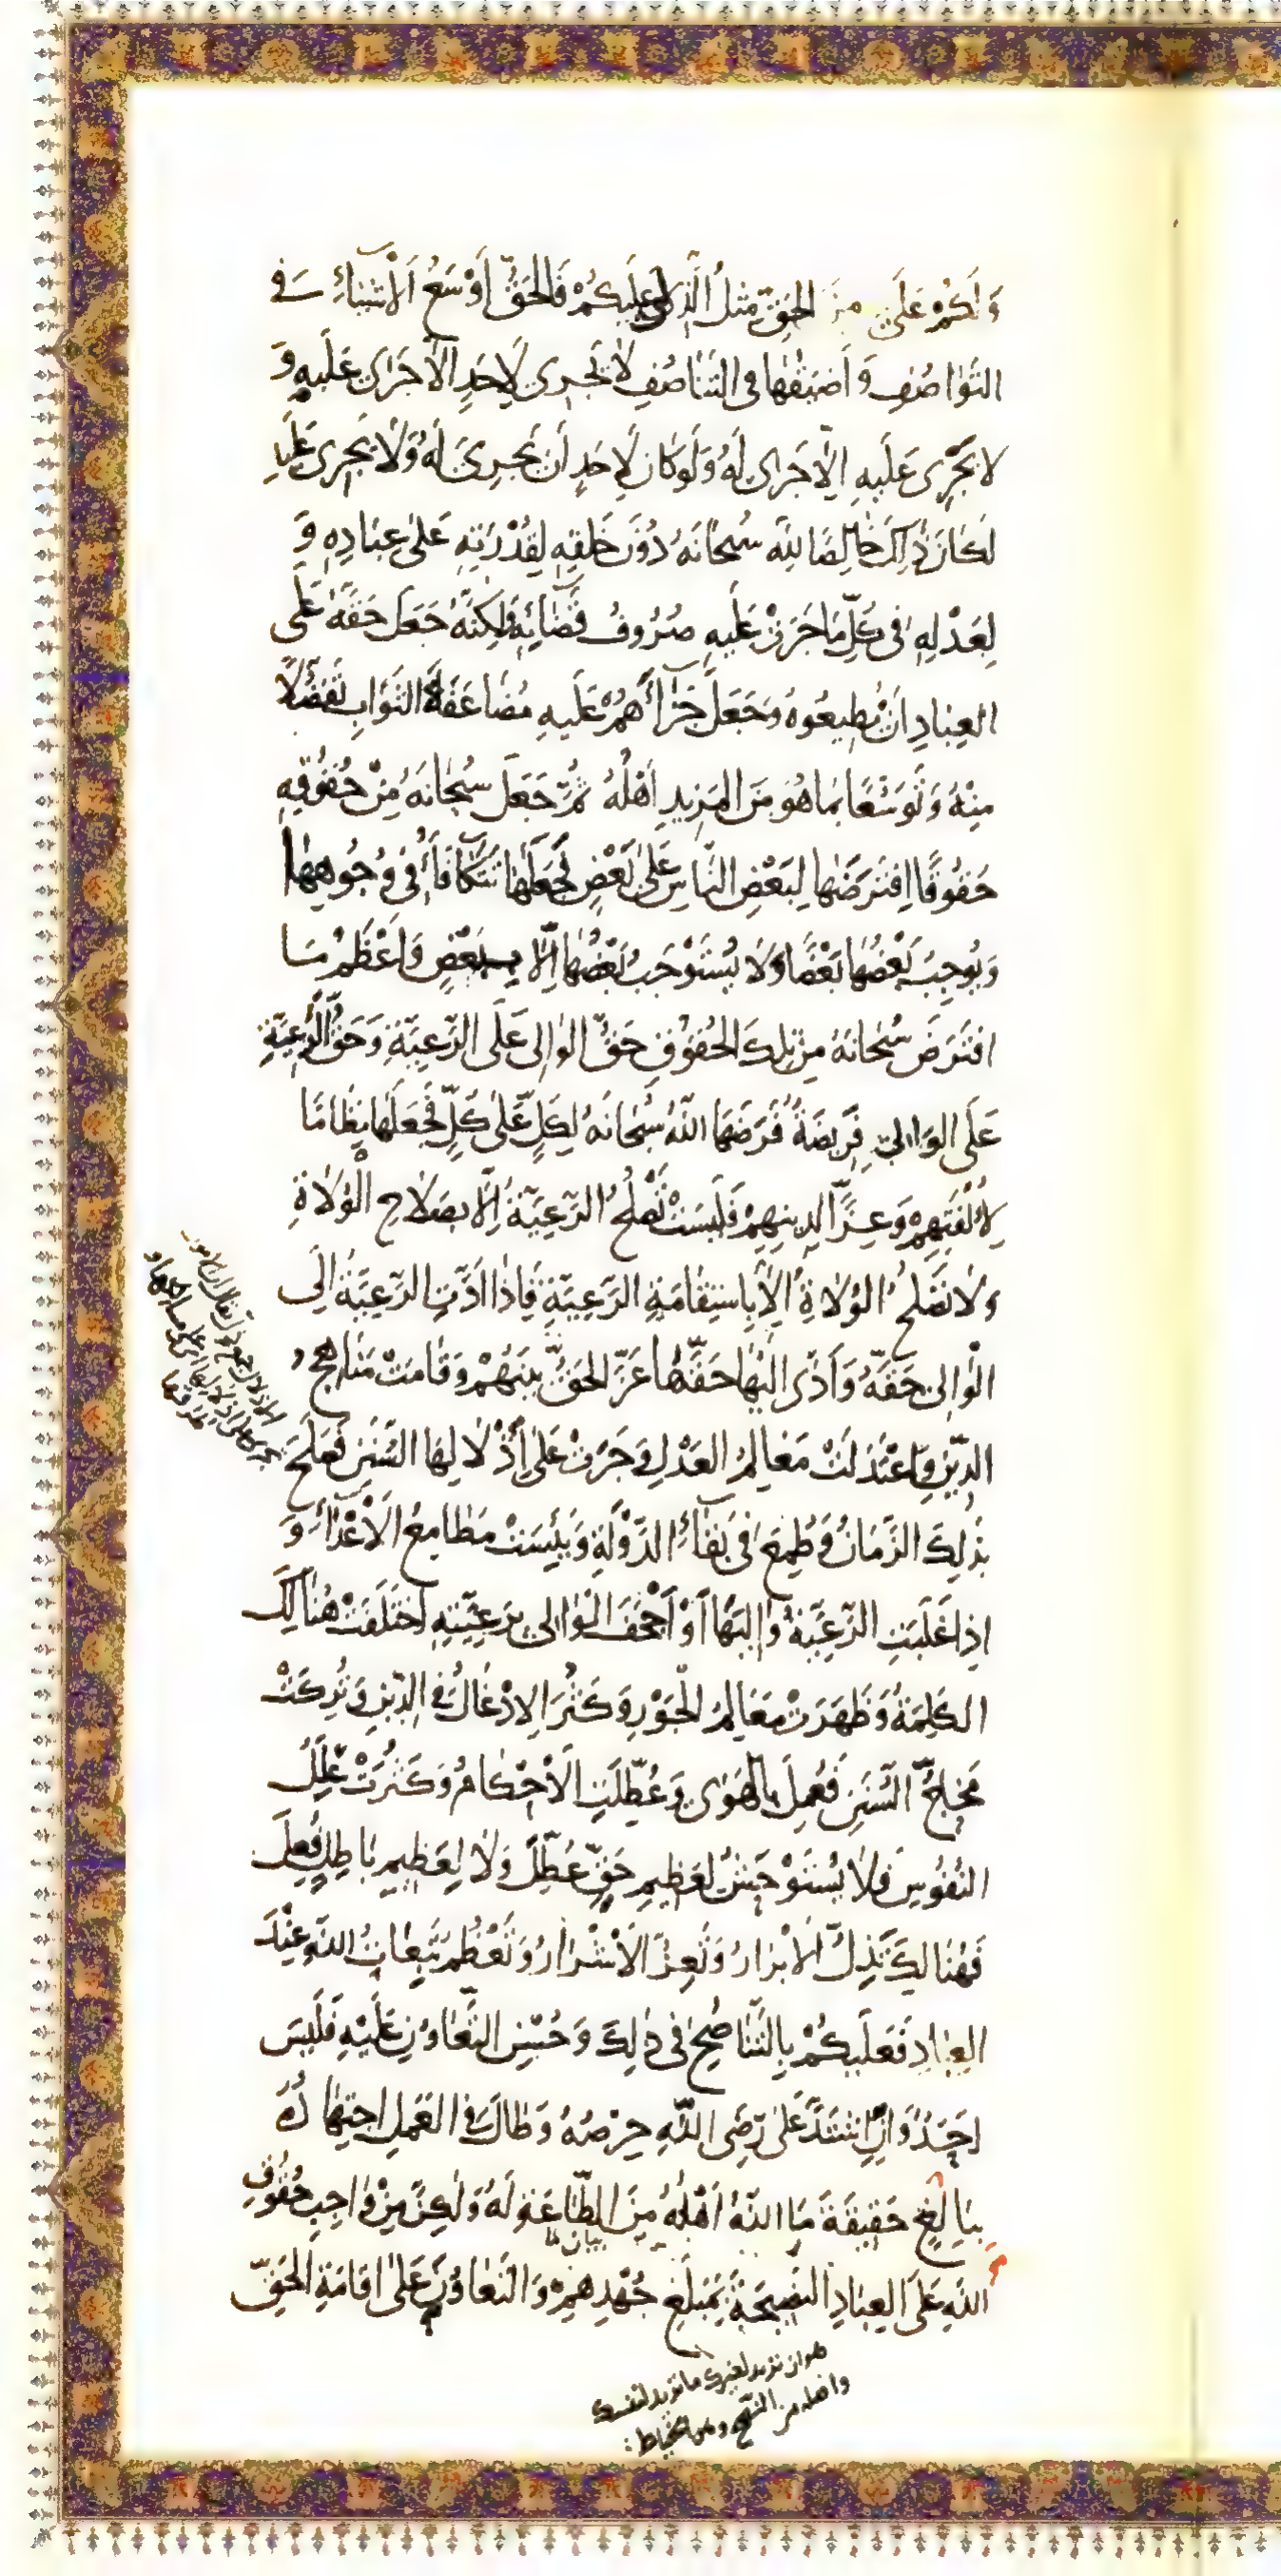 وَلَكُمْ عَلَىَّ مِنَ الحَقِّ مِثْلُ الَّذِى لِى عَلَيْكُمْ فَالحَقُّ اَوْسَعُ الْاَشْيَاءِ فِى
التَّوَاصُفِ وَاَضْيَقُهَا فِى التَّنَاصُفِ لَا يَجْرِى لِاَحَدٍ اِلَّا جَرَى عَلَيْهِ وَ
لا يَجْرِى عَلَيْهِ اِلَّا جَرَى لَهُ وَلَوْ كَانَ لِاَحَدٍ اَنْ يَجْرِىَ لَهُ وَلَا يَجْرِىَ عَلَيْهِ
لَكَانَ ذٰلِكَ خَالِصًا لِلّٰهِ سُبْحَانَهُ دُوْنَ خَلْقِهِ لِقُدْرَتِهِ عَلَى عِبَادِهِ وَ
لِعَدْلِهِ فِى كُلِّ مَا جَرَتْ عَلَيْهِ صُرُوفُ قَضَائِهِ وَلَكِنَّهُ جَعَلَ حَقَّهُ عَلَى
العِبَادِ اَنْ يُطِيعُوهُ وَجَعَلَ جَزَاءَهُمْ عَلَيْهِ مُضَاعَفَةَ الثَّوَابِ تَفَضُّلًا
مِنْهُ وَتَوَسُّعًا بِمَا هُوَ مِنَ المَزِيدِ اَهْلُهُ ثُمَّ جَعَلَ سُبْحَانَهُ مِنْ حُقُوْقِهِ
حُقُوقًا اِفْتَرَضَهَا لِبَعْضِ النَّاسِ عَلَى بَعْضٍ فَجَعَلَهَا تَتَكَافَأُ فِى وُجُوهِهَا
وَيُوجِبُ بَعْضُهَا بَعْضًا وَلَا يُسْتَوْجَبُ بَعْضُهَا اِلَّا بِبَعْضٍ وَاَعْظَمُ مَا
افْتَرَضَ سُبْحَانَهُ مِنْ تِلْكَ الحُقُوْقِ حَقُّ الوَالِى عَلَى الرَّعِيَّةِ وَحَقُّ الرَّعِيَّةِ
عَلَى الوَالِى فَرِيضَةٌ فَرَضَهَا اللهُ سُبْحَانَهُ لِكُلٍّ عَلَى كُلٍّ فَجَعَلَهَا نِظَامًا
لِاُلْفَتِهِمْ وَعِزًّا لِدِينِهِمْ فَلَيْسَتْ تَصْلُحُ الرَّعِيَّةُ اِلَّا بِصَلَاحِ الْوُلَاةِ
وَلَا تَصْلُحُ الوُلَاةُ اِلَّا بِاسْتِقَامَةِ الرَّعِيَّةِ فَاِذَا اَدَّتِ الرَّعِيَّةُ اِلَى
الْوَالِى حَقَّهُ وَاَدَّى اِلَيْهَا حَقَّهَا عَزَّ الحَقُّ بَيْنَهُمْ وَقَامَتْ مَنَاهِجُ
الدِّيْنِ وَاعْتَدَلَتْ مَعَالِمُ العَدْلِ وَجَرَتْ عَلَى اَذْلَالِهَا السُّنَنُ فَصَلُحَ
بِذٰلِكَ الزَّمَانُ وَطُمِعَ فِى بَقَاءِ الدَّوْلَةِ وَيَئِسَتْ مَطَامِعُ الْاَعْدَاءِ وَ
اِذَا غَلَبَتِ الرَّعِيَّةُ وَالِيَهَا اَوْ اَجْحَفَ الْوَالِى بِرَعِيَّتِهِ اخْتَلَفَتْ هُنَالِكَ
الكَلِمَةُ وَظَهَرَتْ مَعَالِمُ الْجَوْرِ وَكَثُرَ الاِدْغَالُ فِى الدِّيْنِ وَتُرِكَتْ
مَحَاجُّ السُّنَنِ فَعُمِلَ بِالْهَوَى وَعُطِّلَتِ الْاَحْكَامُ وَكَثُرَتْ عِلَلُ
النُّفُوْسِ فَلَا يُسْتَوْحَشُ لِعَظِيمِ حَقٍّ عُطِّلَ وَلَا لِعَظِيمِ بَاطِلٍ فُعِلَ
فَهُنَالِكَ تَذِلُّ الْاَبْرَارُ وَتَعِزُّ الْاَشْرَارُ وَتَعْظُمُ تَبِعَاتُ اللهِ عِنْدَ
العِبَادِ فَعَلَيْكُمْ بِالتَّنَاصُحِ فِى ذٰلِكَ وَحُسْنِ التَّعَاوُنِ عَلَيْهِ فَلَيْسَ
اَحَدٌ وَاِنِ اشْتَدَّ عَلَى رِضَى اللّٰهِ حِرْصُهُ وَطَالَ فِى العَمَلِ اجْتِهَادُهُ
بِبَالِغٍ حَقِيقَةَ مَا اللهُ اَهْلُهُ مِنَ الطَّاعَةِ لَهُ وَلَكِنْ مِنْ وَاجِبِ حُقُوْقِ
بيان لما
اللهِ عَلَى العِبَادِ النَّصِيحَةُ بِمَبْلَغِ جُهْدِهِمْ وَالتَّعَاوُنُ عَلَى اِقَامَةِ الحَقِّ
هو ان تريد لغيرك ما تريد لنفسك
واصله من النصح وهو الخياط